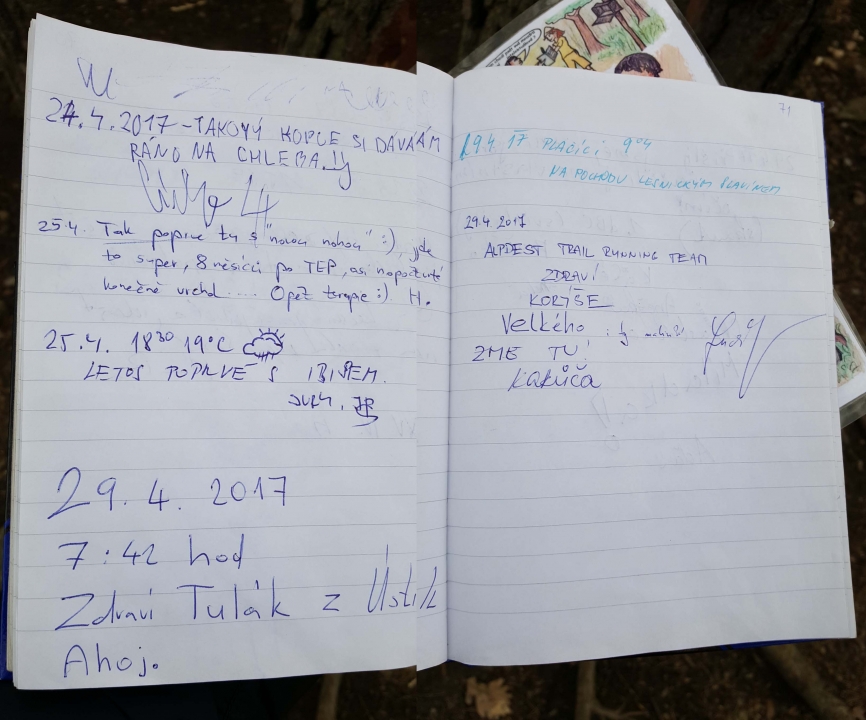 24.4.2017 - TAKOVÝ KOPCE SI DÁVÁÁM
RÁNO NA CHLEBA
25.4. Tak poprvé tu s "novou nohou" :), jde
to super, 8 měsíců po TEP, asi napočtvrté
konečně vrchol .... Opět terapie :). H.
25.4. 18³⁰ 19°C
LETOS POPRVÉ S
29. 4. 2017
7:42 hod
Zdraví Tulák z Ústí
Ahoj.
71
29.4. 17 PLAČÍCÍ 9⁰⁴
NA POCHODU LESNICKÝM
29.4. 2017
ALPDEST TRAIL RUNNING TEAM
ZDRAVÍ
KORÝŠE
Velkého
ZME TU!
KAKŮČA